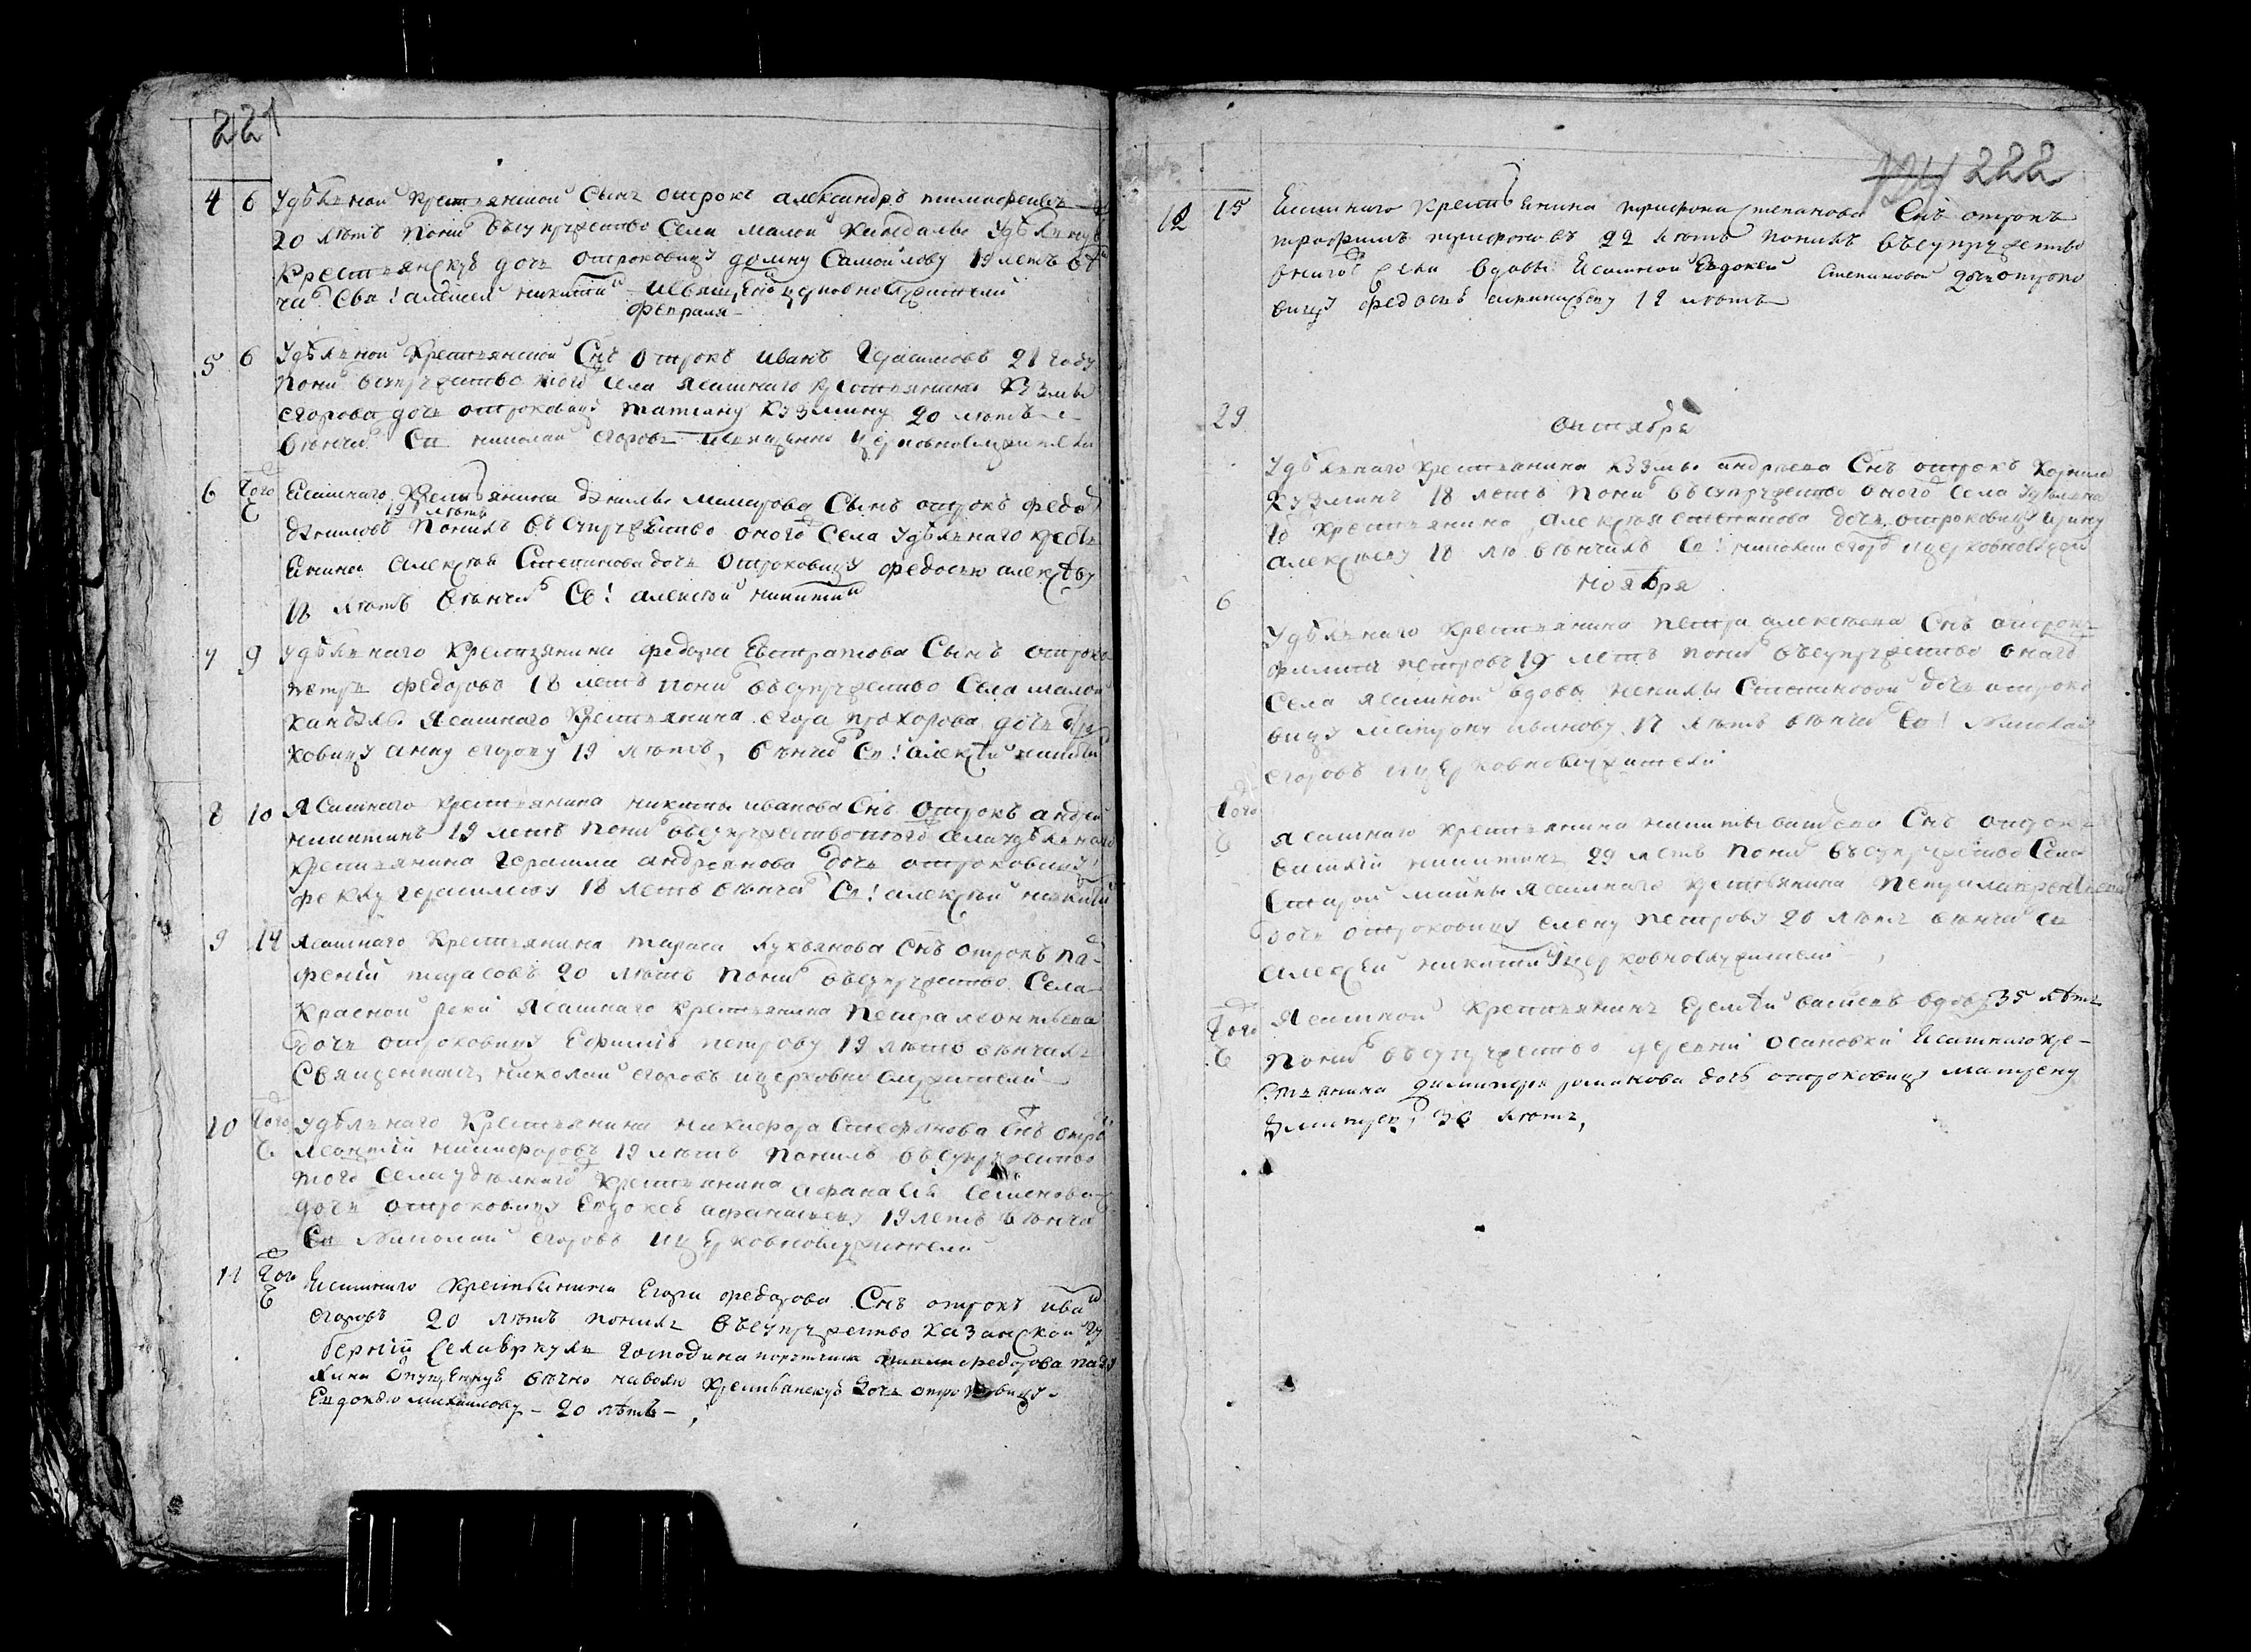 221
4 6 Удѣльной крестьянской Сынъ отрокъ александръ тимофеевъ
20 лѣтъ понялъ въ супружество села малой кандалы Удѣльную
крестьянскую дочь отроковицу домну Самойлову 19 летъ вѣн
чалъ Свя: алексей никитинъ исвящено церковнослужители
февраля
5 6 Удѣльной крестьянской Снъ отрокъ иванъ Герасимовъ 21 году
понялъ всупружество того села ясашнаго крестьянина кузмы
егорова дочь отроковицу татиану кузмину 20 лѣтъ
вѣнчалъ Св николай егоровъ исвященно церковнослужители
6 Того Ясашнаго крестьянина данилы Сынъ отрокъ федо
19 лѣтъ
даниловъ понялъ всупружество оного Села Удѣльнаго кресть
янина алексѣя Степанова дочь отроковицу федосью алексѣву
18 лѣтъ вѣнчалъ Св: алексѣй никитинъ
7 9 Удѣльнаго крестьянина федора Евстратова Сынъ отрокъ
петръ федоровъ 18 летъ понялъ въсупружество Села малой
кандалы ясашнаго крестьянина егора прохорова дочь отро
ковицу анну егорову 19 лѣтъ, вѣнчалъ Св: алексѣй никитинъ
8 10 Ясашнаго крестьянина никиты иванова Снъ отрокъ андрей
никитинъ 19 летъ понялъ въсупружество того села удѣльнаго
крестьянина Герасима андреянова дочь отроковицу
феклу герасимову 18 летъ вѣнчалъ Св: алексѣй никитинъ
9 14 Ясашнаго крестьянина тараса лукьянова Снъ отрокъ па
фений тарасовъ 20 лѣтъ понялъ въсупружество Села
красной реки ясашнаго крестьянина петра леонтьева
дочь отроковицу Ефимию петрову 19 лѣтъ вѣнчалъ
Священникъ николай егоровъ ицерковно служители
10 Того Удѣльнаго крестьянина никифора Стефанова Снъ отро
леонтий никифоровъ 19 лѣтъ понялъ въсупружество
того села удѣлнаго крестьянина афанасия Семенова
дочь отроковицу Евдокею афанасеву 19 летъ вѣнча
Св николай егоровъ ицерковнослужители
11 Того Ясашнаго крестьянина Егора федорова Снъ отрокъ ива
егоровъ 20 лѣтъ понялъ въсупружество казанской гу
берний Господина федорова
вѣчно наволю крестьянскую дочь отроковицу
Евдокею михаилову - 20 лѣтъ -
124 222
12 15 Ясашнаго крестьянина трифона степанова Снъ отрокъ
трофимъ трифоновъ 22 лѣтъ понялъ въсупружество
оного села вдовы Ясашной Евдокеи Степановой дочь отроко
вицу федосью 18 лѣтъ
29 октября
Удѣльнаго крестьянина кузмы андреева Снъ отрокъ корнило
кузминъ 18 летъ понялъ въсупружество оного села Удѣльна
го крестьянина алексѣя степанова дочь отроковицу ирину
алексѣеву 18 лѣ вѣнчалъ Св: николай егоро ицерковнослужи
ноября
6
Удѣльнаго крестьянина петра алексѣева Снъ отрокъ
филипъ петровъ 19 летъ понялъ въсупружество онаго
Села ясашной вдовы Степановой дочь отроко
вицу матрону иванову 17 лѣтъ вѣнчалъ Св: николай
егоровъ ицерковнослужители
Того Ясашнаго крестьянина никиты Снъ отрокъ
василий никитинъ 29 летъ понялъ въсупружество Села
Старой майны ясашнаго крестьянина петра лаврентьева
дочь отроковицу елену петрову 20 лѣтъ вѣнчалъ Св
алексѣй никитинъ ицерковнослужители
Того Ясашной крестьянинъ вдовъ 35 лѣтъ
понялъ въсупружество деревни Ясашнаго кре-
стьянина димитрия романова дочь отроковицу матрену
30 лѣтъ,